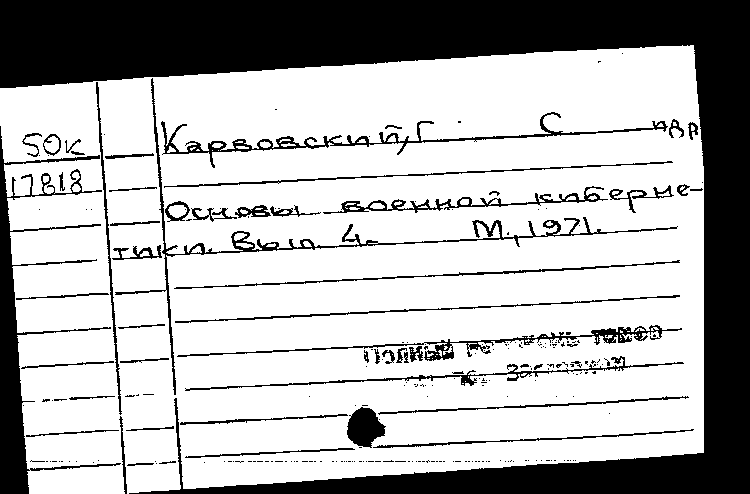 50к
17818
Карвовский, Г. С и др
Основы военной киберне-
тики. Вып. 4. М., 1971.
Полный перечень томов
см. под заглавием